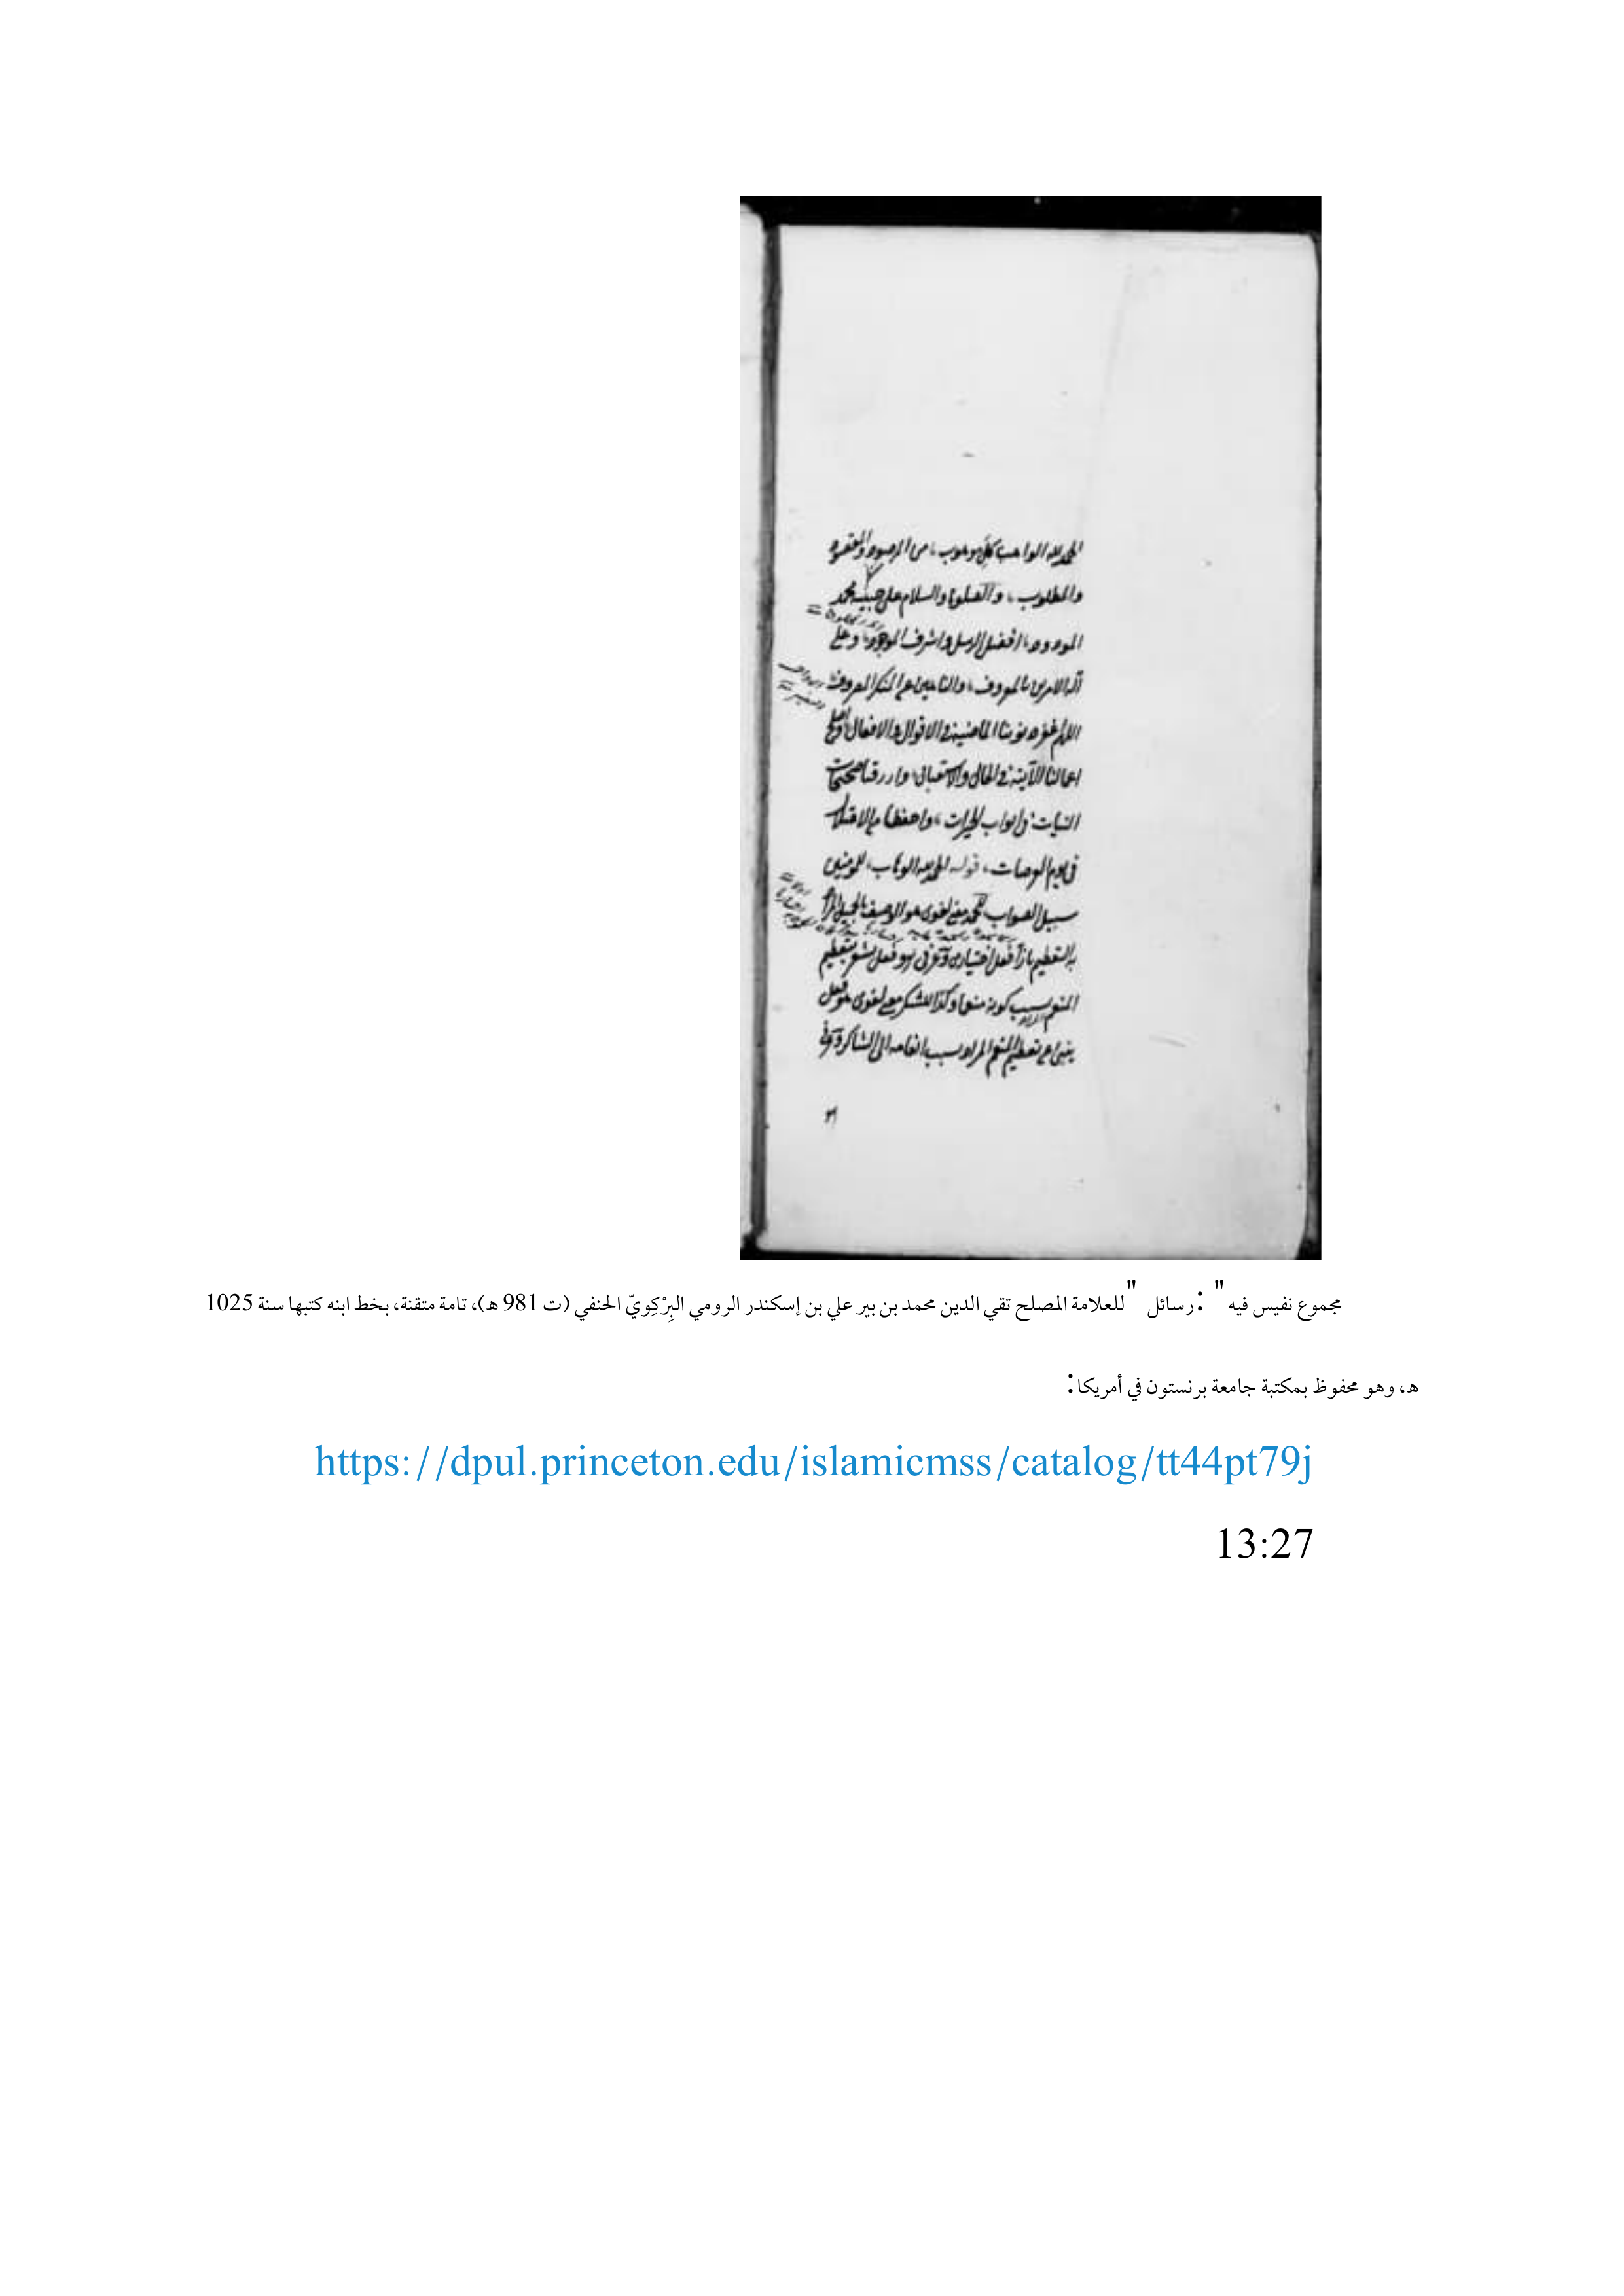 الحمد لله الواهب كل موهوب، من المرصود والمقصود
والمطلوب، والصلوة والسلام على حبيبه محمد
المودود، افضل الرسل واشرف الموجود، وعلى
آله الامرين بالمعروف، والناهين عن المنكر المعروف
اللهم اغفر ذنوبنا الماضية في الاقوال والافعال واصلح
اعمالنا الآتية في الحال والاستقبال، وارزقنا
النيات، وابواب الخيرات، واحفظنا
في يوم العرصات، قوله الحمد لله الوهاب، للمؤمنين
سبيل الصواب للحمد معنى لغوي هو الوصف بالجميل
بازاء فعل اختياري وعرفي هو فعل يشعر بتعظيم
المنعم بسبب كونه منعما وكذا للشكر معنى لغوي هو فعل
ينبئ عن تعظيم المنعم المراد بسبب انعامه الى الشاكر وعرفي
مجموع نفيس فيه " :رسائل " للعلامة المصلح تقي الدين محمد بن بير علي بن إسكندر الرومي البِرْكِويّ الحنفي (ت 981 ه)، تامة متقنة، بخط ابنه كتبها سنة 1025
ه، وهو محفوظ بمكتبة جامعة برنستون في أمريكا:
https://dpul.princeton.edu/islamicmss/catalog/tt44pt79j
13:27